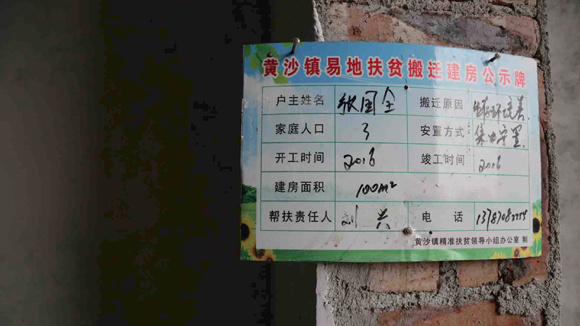 黄沙镇易地扶贫搬迁建房公示牌
户主姓名 张国全 搬迁原因
家庭人口 3 安置方式 集中安置
开工时间 2016 竣工时间 2016
建房面积 100m²
帮扶责任人 刘兴 电话
黄沙镇精准扶贫领导小组办公室 制